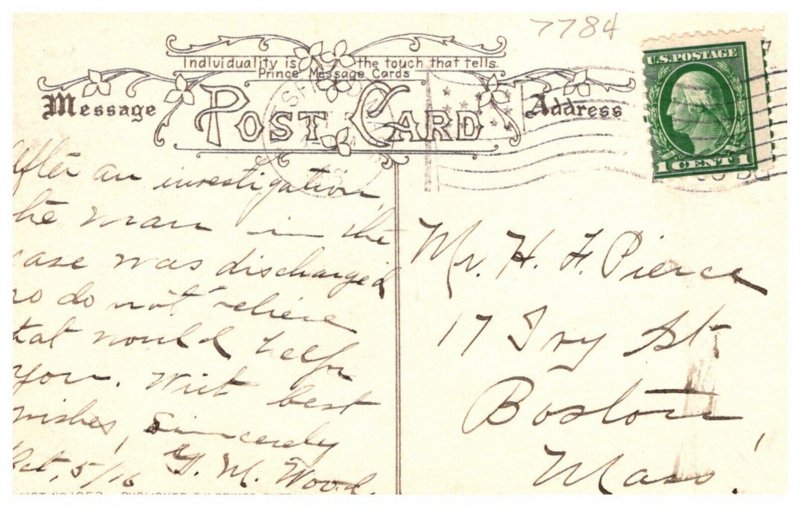 7784
Individuality is the touch that tells.
Prince Message Cards
Message
POST CARD
Address
U.S. POSTAGE
1 CENT 1
After an investigation
the man in the
case was discharged
so do not believe
that would help
you. With best
wishes, Sincerely
Oct, 5/16 G. M. Wood.
Mr. H. F. Pierce
17 Ivy St.
Boston,
Mass.